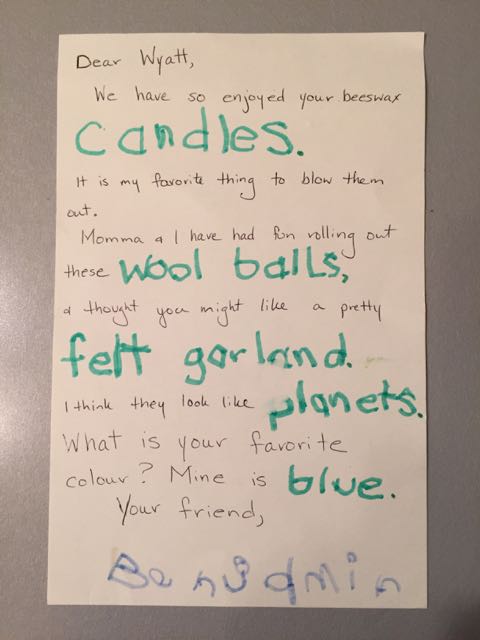 Dear Wyatt,
We have so enjoyed your beeswax
candles.
It is my favorite thing to blow them
out.
Momma & I have had fun rolling out
these wool balls,
& thought you might like a pretty
felt garland.
I think they look like planets.
What is your favorite
colour? Mine is blue.
Your friend,
Benjamin